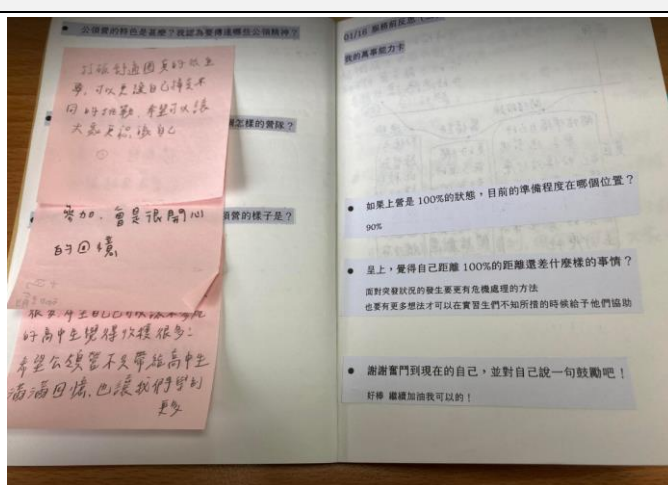 公領營的特色是甚麼？我認為要傳達哪些公領精神？
打破舒適圈真好的一
同的挑戰，希望可以讓
大家更認識自己
怎樣的營隊？
領營的樣子是？
參加，會是很開心
的回憶
的高中生覺得收穫很多！
希望公領營不只帶給高中生
滿滿回憶，也讓我們學到
更多
01/16 服務前反思
我的萬事能力卡
如果上營是 100%的狀態，目前的準備程度在哪個位置？
90%
呈上，覺得自己距離 100%的距離還差什麼樣的事情？
面對突發狀況的發生要更有危機處理的方法
也要有更多想法才可以在實習生們不知所措的時候給予他們協助
謝謝奮鬥到現在的自己，並對自己說一句鼓勵吧！
好棒 繼續加油我可以的！